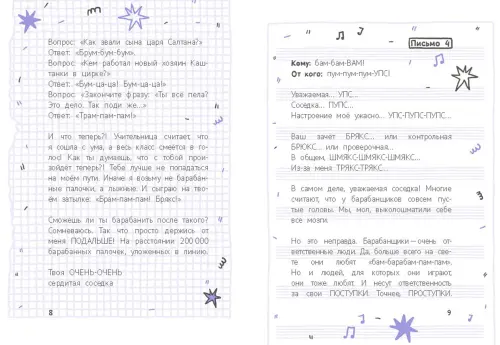 Вопрос: «Как звали сына царя Салтана?»
Ответ: «Брум-бум-бум».
Вопрос: «Кем работал новый хозяин Каш-
танки в цирке?»
Ответ: «Бум-ца-ца! Бум-ца-ца!»
Вопрос: «Закончите фразу: "Ты всё пела?
Это дело. Так поди же..."»
Ответ: «Трам-пам-пам!»
И что теперь?! Учительница считает, что
я сошла с ума, а весь класс смеётся в го-
лос! Как ты думаешь, что с тобой прои-
зойдёт теперь?! Тебе лучше не попадаться
на моём пути. Иначе я возьму не барабан-
ные палочки, а лыжные. И сыграю на тво-
ём затылке: «Брам-пам-пам! Бряк!»
Сможешь ли ты барабанить после такого?
Сомневаюсь. Так что просто держись от
меня ПОДАЛЬШЕ! На расстоянии 200 000
барабанных палочек, уложенных в линию.
Твоя ОЧЕНЬ-ОЧЕНЬ
сердитая соседка
8
Письмо 4
Кому: бам-бам-ВАМ!
От кого: пум-пум-пум-УПС!
Уважаемая... УПС...
Соседка... ПУПС...
Настроение моё ужасно... УПС-ПУПС-ПУПС...
Ваш зачёт БРЯКС... или контрольная
БРЮКС... или проверочная...
В общем, ШМЯКС-ШМЯКС-ШМЯКС...
Из-за меня ТРЯКС-ТРЯКС...
В самом деле, уважаемая соседка! Многие
считают, что у барабанщиков совсем пус-
тые головы. Мы, мол, выколошматили себе
все мозги.
Но это неправда. Барабанщики — очень от-
ветственные люди. Да, больше всего на све-
те они любят «бам-барабам-пам-пам».
Но и людей, для которых они играют,
они тоже любят. И несут ответственность
за свои ПОСТУПКИ. Точнее, ПРОСТУПКИ.
9